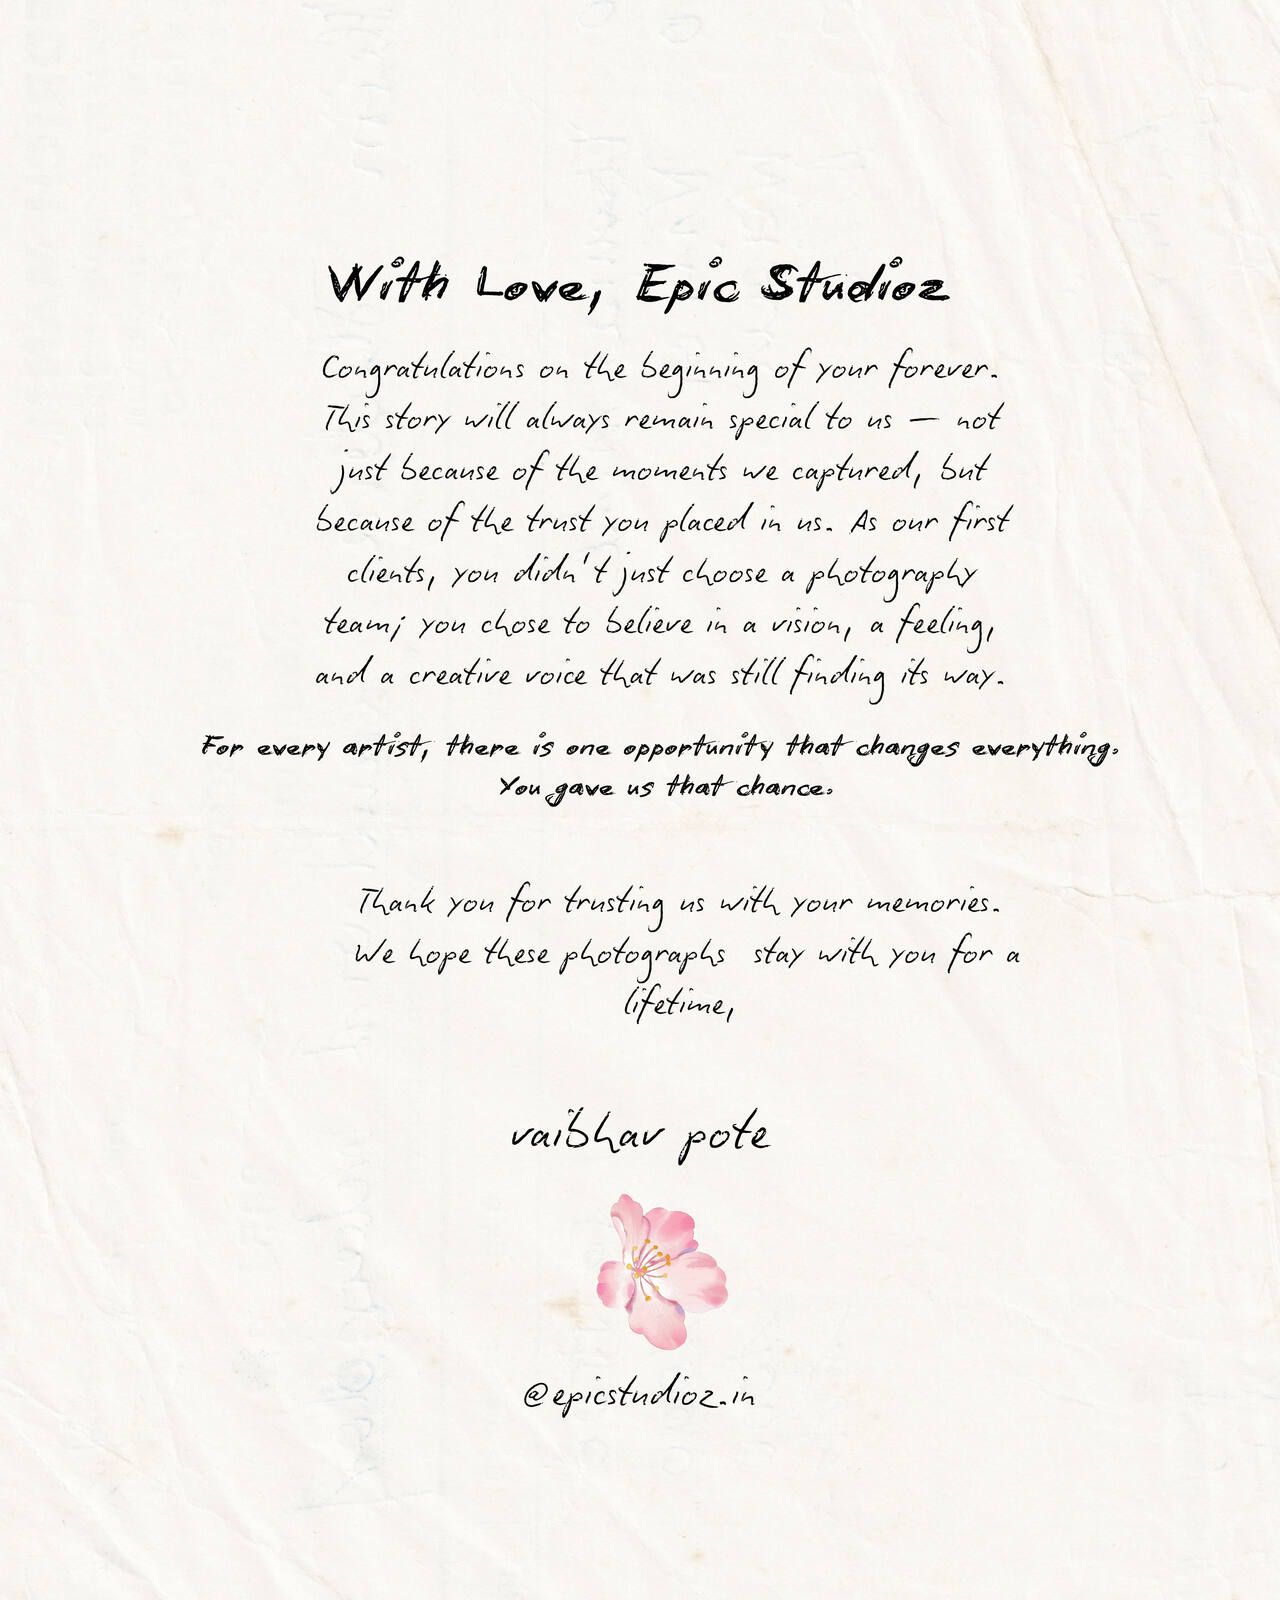 With Love, Epic Studioz
Congratulations on the beginning of your forever.
This story will always remain special to us — not
just because of the moments we captured, but
because of the trust you placed in us. As our first
clients, you didn't just choose a photography
team; you chose to believe in a vision, a feeling,
and a creative voice that was still finding its way.
For every artist, there is one opportunity that changes everything.
You gave us that chance.
Thank you for trusting us with your memories.
We hope these photographs stay with you for a
lifetime,
vaibhav pote
@epicstudioz.in